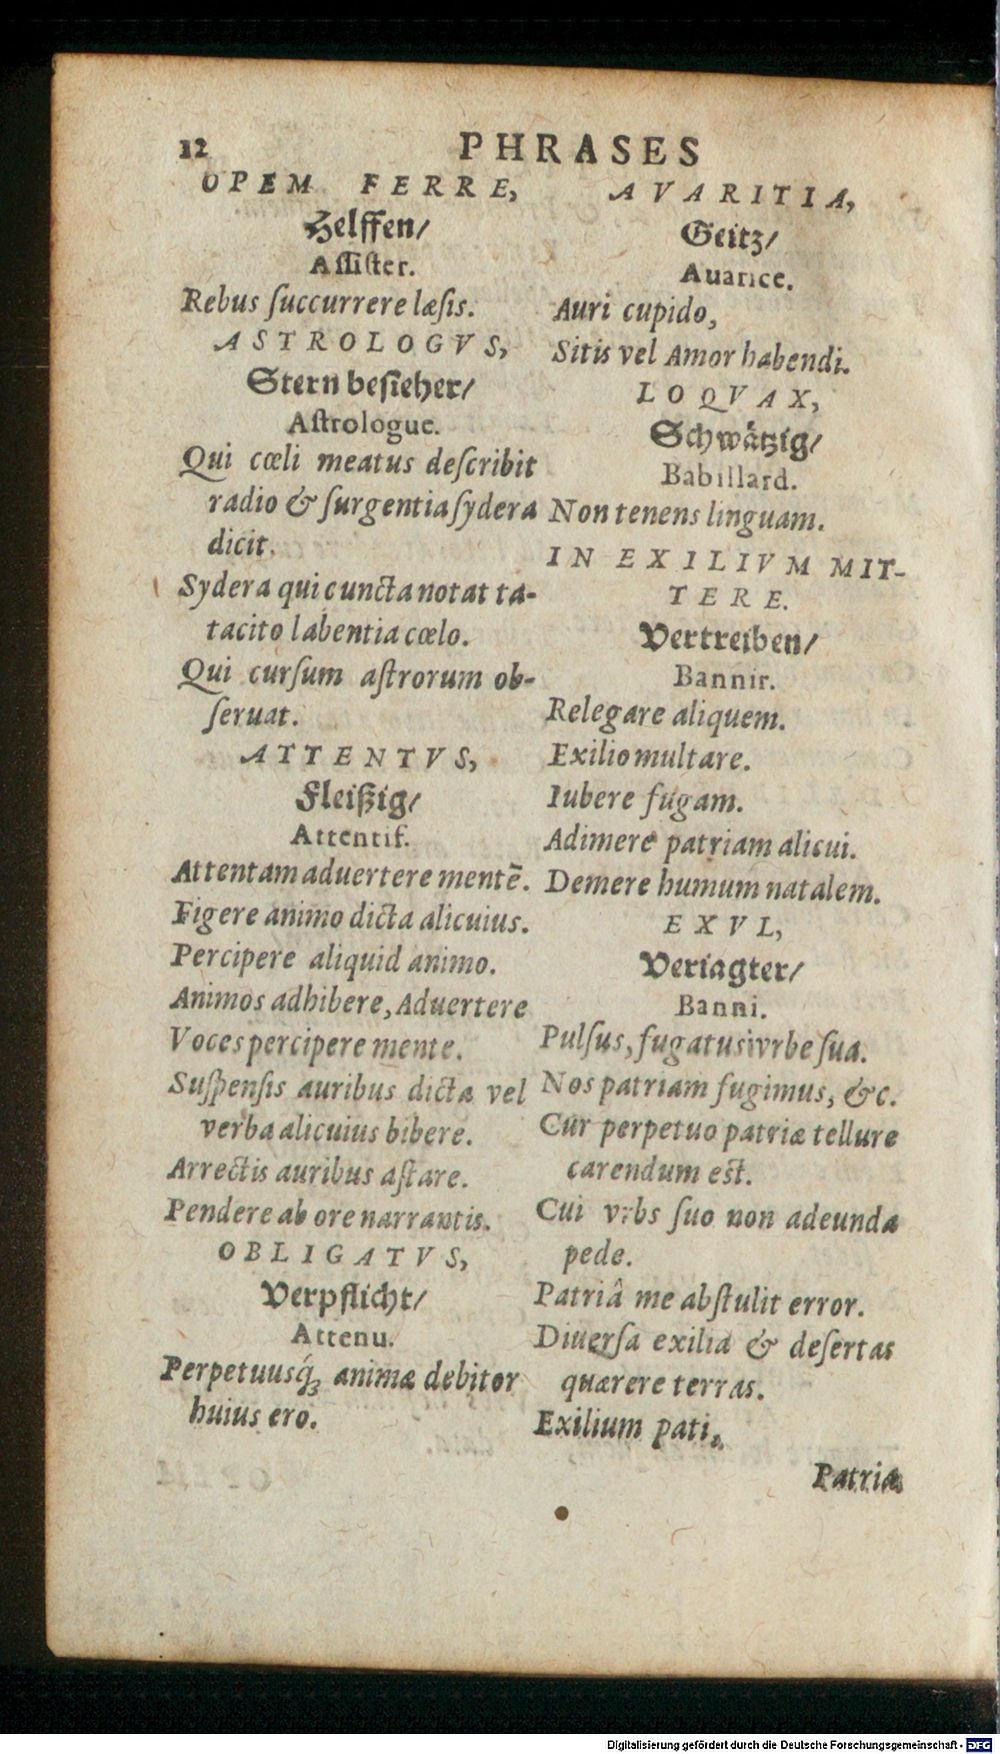 12
PHRASES
OPEM FERRE,
Helffen/
Aſſiſter.
Rebus ſuccurrere læſis.
ASTROLOGVS,
Stern beſieher/
Aſtrologue.
Qui cœli meatus deſcribit
radio & ſurgentia ſydera
dicit.
Sydera qui cuncta notat ta-
tacito labentia cœlo.
Qui curſum aſtrorum ob-
ſeruat.
ATTENTVS,
Fleißig/
Attentif.
Attentam aduertere mentẽ.
Figere animo dicta alicuius.
Percipere aliquid animo.
Animos adhibere, Aduertere
Voces percipere mente.
Suſpenſis auribus dicta vel
verba alicuius bibere.
Arrectis auribus aſtare.
Pendere ab ore narrantis.
OBLIGATVS,
Verpflicht/
Attenu.
Perpetuusq́ꝫ animæ debitor
huius ero.
AVARITIA,
Geitz/
Auarice.
Auri cupido,
Sitis vel Amor habendi.
LOQVAX,
Schwåtzig/
Babillard.
Non tenens linguam.
IN EXILIVM MIT-
TERE.
Vertreiben/
Bannir.
Relegare aliquem.
Exilio multare.
Iubere fugam.
Adimere patriam alicui.
Demere humum natalem.
EXVL,
Veriagter/
Banni.
Pulſus, fugatusivrbe ſua.
Nos patriam fugimus, &c.
Cur perpetuo patriæ tellure
carendum eſt.
Cui vrbs ſuo non adeunda
pede.
Patriâ me abſtulit error.
Diuerſa exilia & deſertas
quærere terras.
Exilium pati,
Patria
Digitalisierung gefördert durch die Deutsche Forschungsgemeinschaft - DFG